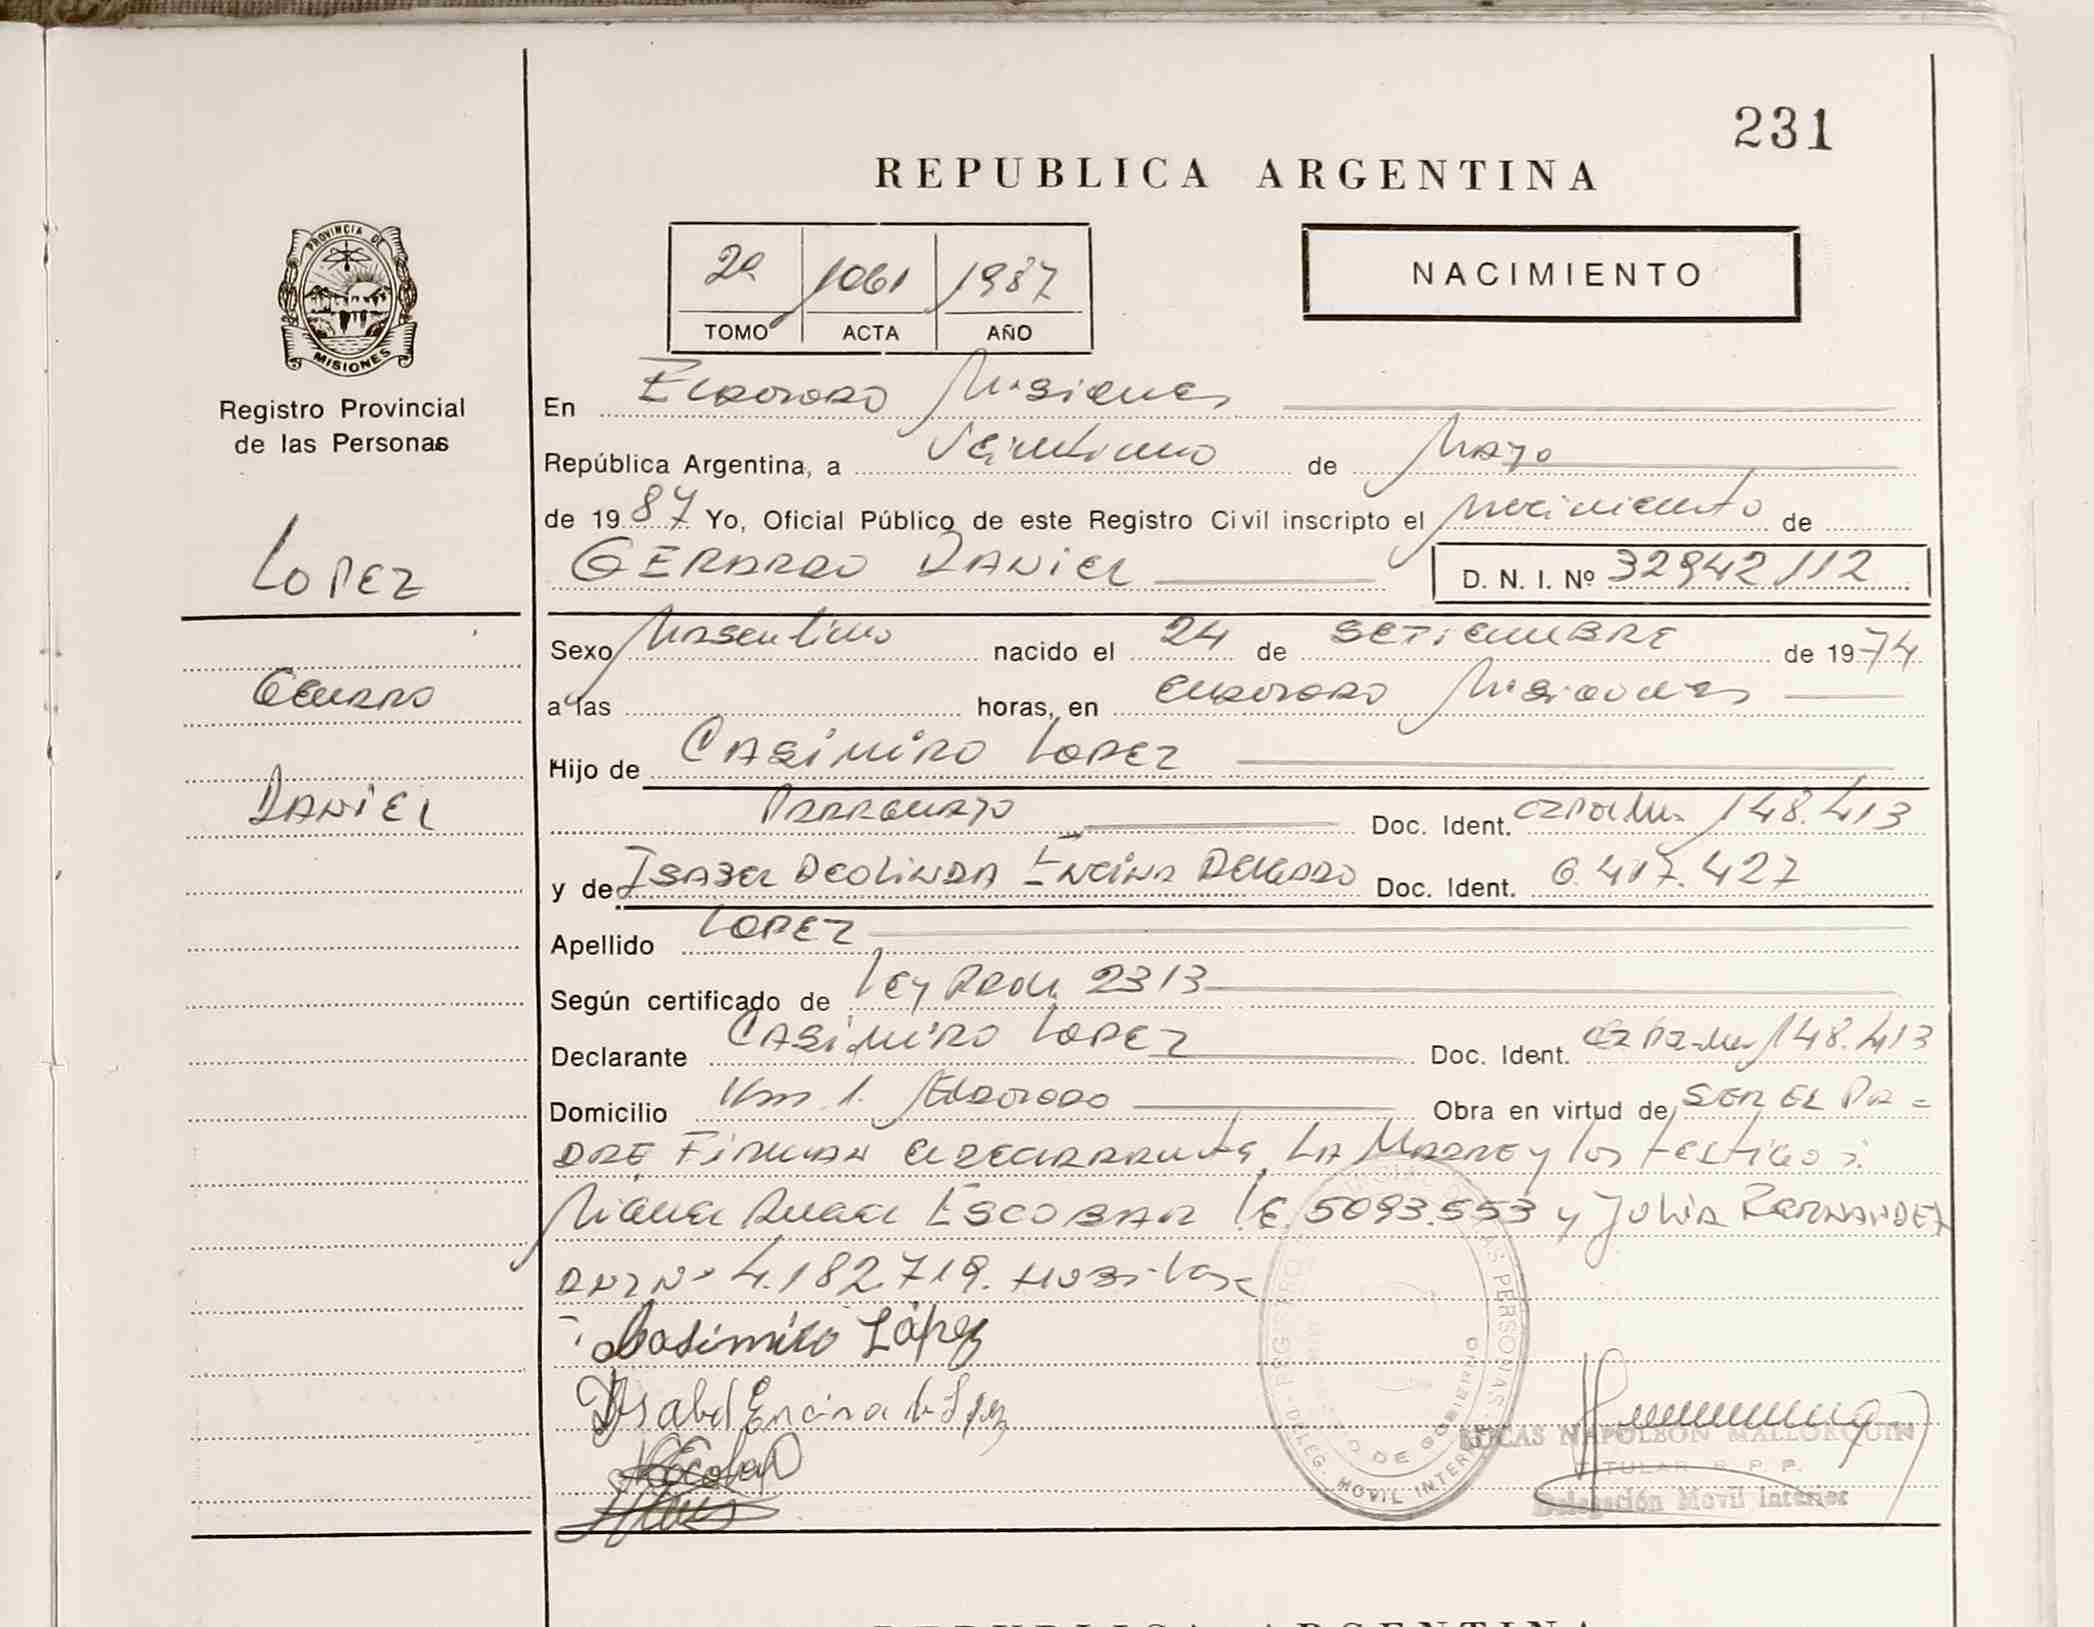 231
REPUBLICA ARGENTINA
PROVINCIA DE
MISIONES
Registro Provincial
de las Personas
LOPEZ
GERARDO
DANIEL
2º 1061 1987
TOMO ACTA AÑO
NACIMIENTO
En ELDORADO Misiones
República Argentina, a Veintiuno de Mayo
de 1987 Yo, Oficial Público de este Registro Civil inscripto el Nacimiento de
GERARDO DANIEL D. N. I. Nº 32942112
Sexo Masculino nacido el 24 de SETIEMBRE de 1974
a las horas, en ELDORADO Misiones
Hijo de CASIMIRO LOPEZ
PARAGUAYO Doc. Ident. 148.413
y de ISABEL DEOLINDA ENCINA DELGADO Doc. Ident. 6.417.427
Apellido LOPEZ
Según certificado de Ley 2313
Declarante CASIMIRO LOPEZ Doc. Ident. 148.413
Domicilio Km 1. Eldorado Obra en virtud de SER EL PA=
DRE FIRMAN LA MADRE y los testigos:
Miguel Angel ESCOBAR L.E. 5093.553 y JULIA FERNANDEZ
DNI Nº 4.182.719.
Casimiro López
Ysabel Encina de Lopez
Escobar
REGISTRO PROVINCIAL DE LAS PERSONAS
DE GOBIERNO
DELEG. MOVIL INTERIOR
LUCAS NAPOLEON MALLORQUIN
TITULAR R. P. P.
Delegación Movil Interior
REPUBLICA ARGENTINA